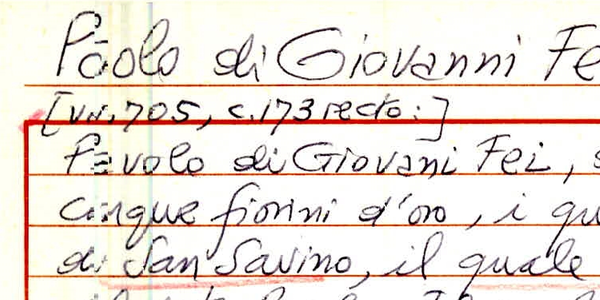 Pàolo di Giovanni Fe
[v.r. 705, c. 173 recto:]
Pavolo di Giovani Fei, s
cinque fiorini d'oro, i qu
di San Savino, il quale